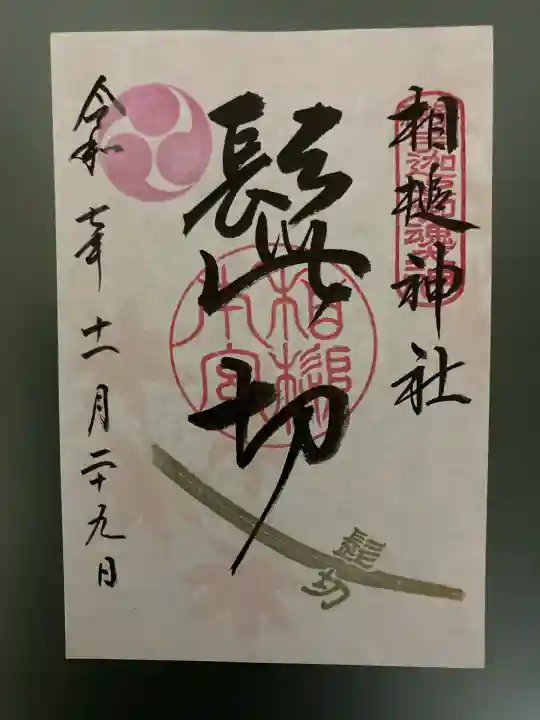 相槌神社
髭切
相槌
本宮
髭切
令和七年十一月二十九日